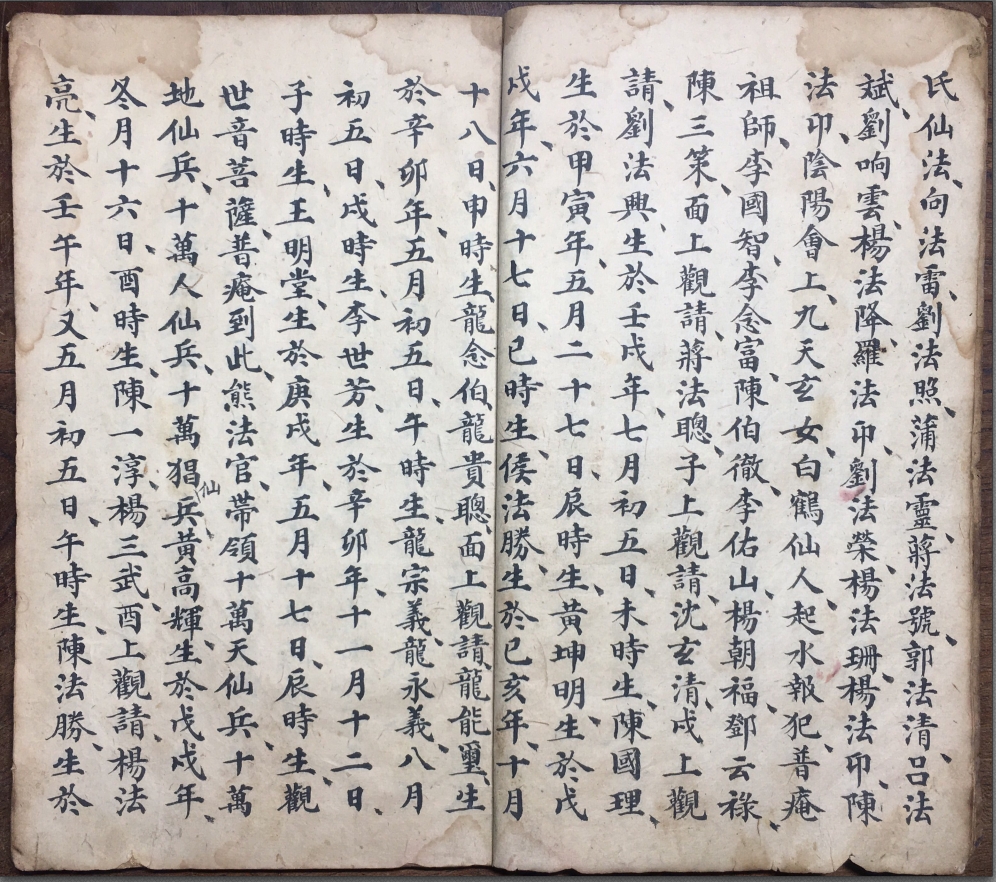 氏仙法、向法雷、劉法照、蒲法靈、蔣法號、郭法清、吕法
斌、劉响雲、楊法降、羅法印、劉法榮、楊法珊、楊法印、陳
法印、陰陽會上、九天玄女、白鶴仙人、起水報犯、普庵
祖師、李國智、李念富、陳伯徹、李佑山、楊朝福、鄧云祿、
陳三策、面上觀請、蔣法聰、子上觀請、沈玄清、戍上觀
請、劉法興、生於壬戍年七月初五日、未時生、陳國理、
生於甲寅年、五月二十七日、辰時生、黃坤明、生於戊
戍年、六月十七日、巳時生、侯法勝、生於已亥年、十月
十八日、申時生、龍念伯、龍貴聰、面上觀請、龍能璽、生
於辛卯年、五月初五日、午時生、龍宗義、龍永義、八月
初五日、戍時生、李世芳、生於辛卯年、十一月十二日
子時生、王明堂、生於庚戍年、五月十七日、辰時生、觀
世音菩薩、普庵到此、熊法官、帶領十萬天仙兵、十萬
地仙兵、十萬人仙兵、十萬猖仙兵、黃高輝、生於戊戍年、
冬月十六日、酉時生、陳一淳、楊三武、酉上觀請、楊法
亮、生於壬午年、又五月初五日、午時生、陳法勝、生於